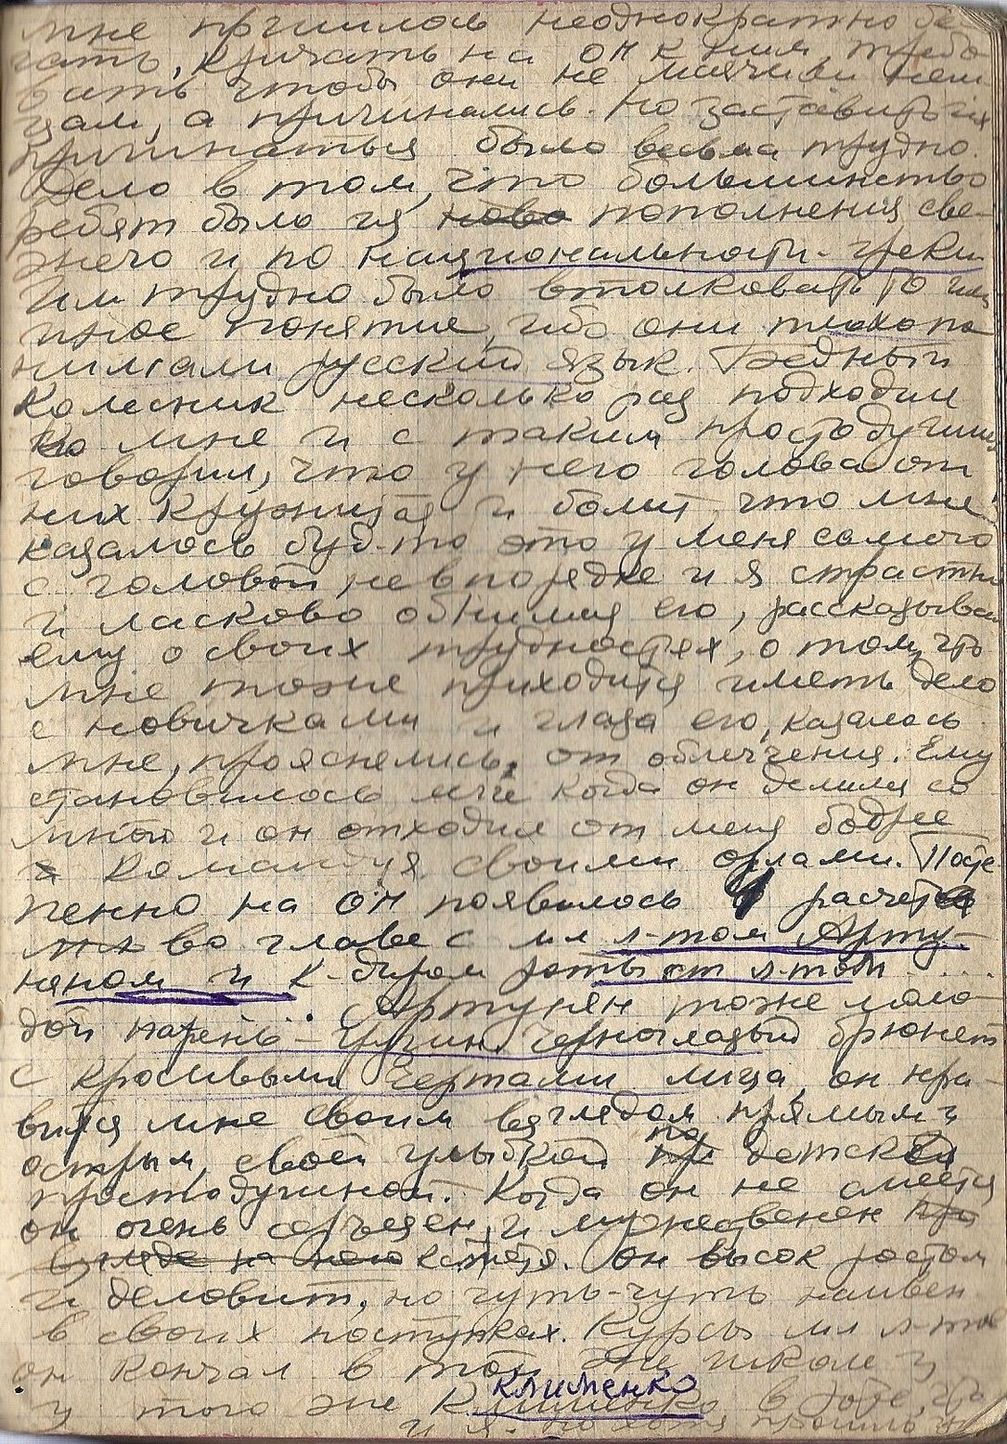 мне пришлось неоднократно бе-
гать, кричать на ОН к ним, требо
вать чтобы они не маячили нем
цам, а пригинались. Но заставить их
пригинаться было весьма трудно.
Дело в том, что большинство
ребят было из ново пополнения све-
жего и по национальности - греки
Им трудно было втолковать то или
иное понятие, ибо они плохо по
нимали русский язык. Бедный
Колесник несколько раз подходил
ко мне и с таким простодушием
говорил, что у него голова от
них кружится и болит, что мне
казалось буд-то это у меня самого
с головой не в порядке и я страстно
и ласково обнимая его, рассказывал
ему о своих трудностях, о том, что
мне тоже приходится иметь дело
с новичками и глаза его, казалось
мне, прояснялись от облегчения. Ему
становилось легче когда он делился со
мною и он отходил от меня бодрее
командуя своими орлами. Посте
пенно на ОН появилось 4 расчета
во главе с мл л-том Арту-
няном и к-диром роты ст л-том ....
Артунян тоже моло-
дой парень - грузин. Черноглазый брюнет
с красивыми чертами лица, он нра-
вится мне своим взглядом прямым и
острым, своей улыбкой по детски
простодушной. Когда он не смеется
он очень серьезен и мужественен
взгляде на него кстати. Он высок ростом
и деловит, но чуть-чуть наивен
в своих поступках. Курсы мл л-тов
он кончал в той же школе и
Клименко
у того же Клименко, в
и я. Но хотя прошло